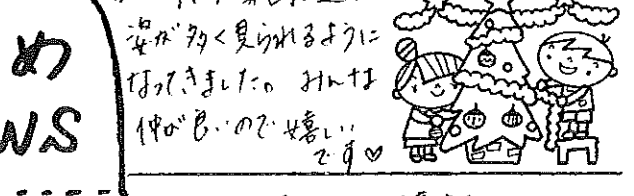 め
NS
姿が多く見られるように
なってきました。みんな
仲が良いので嬉しい
です♡